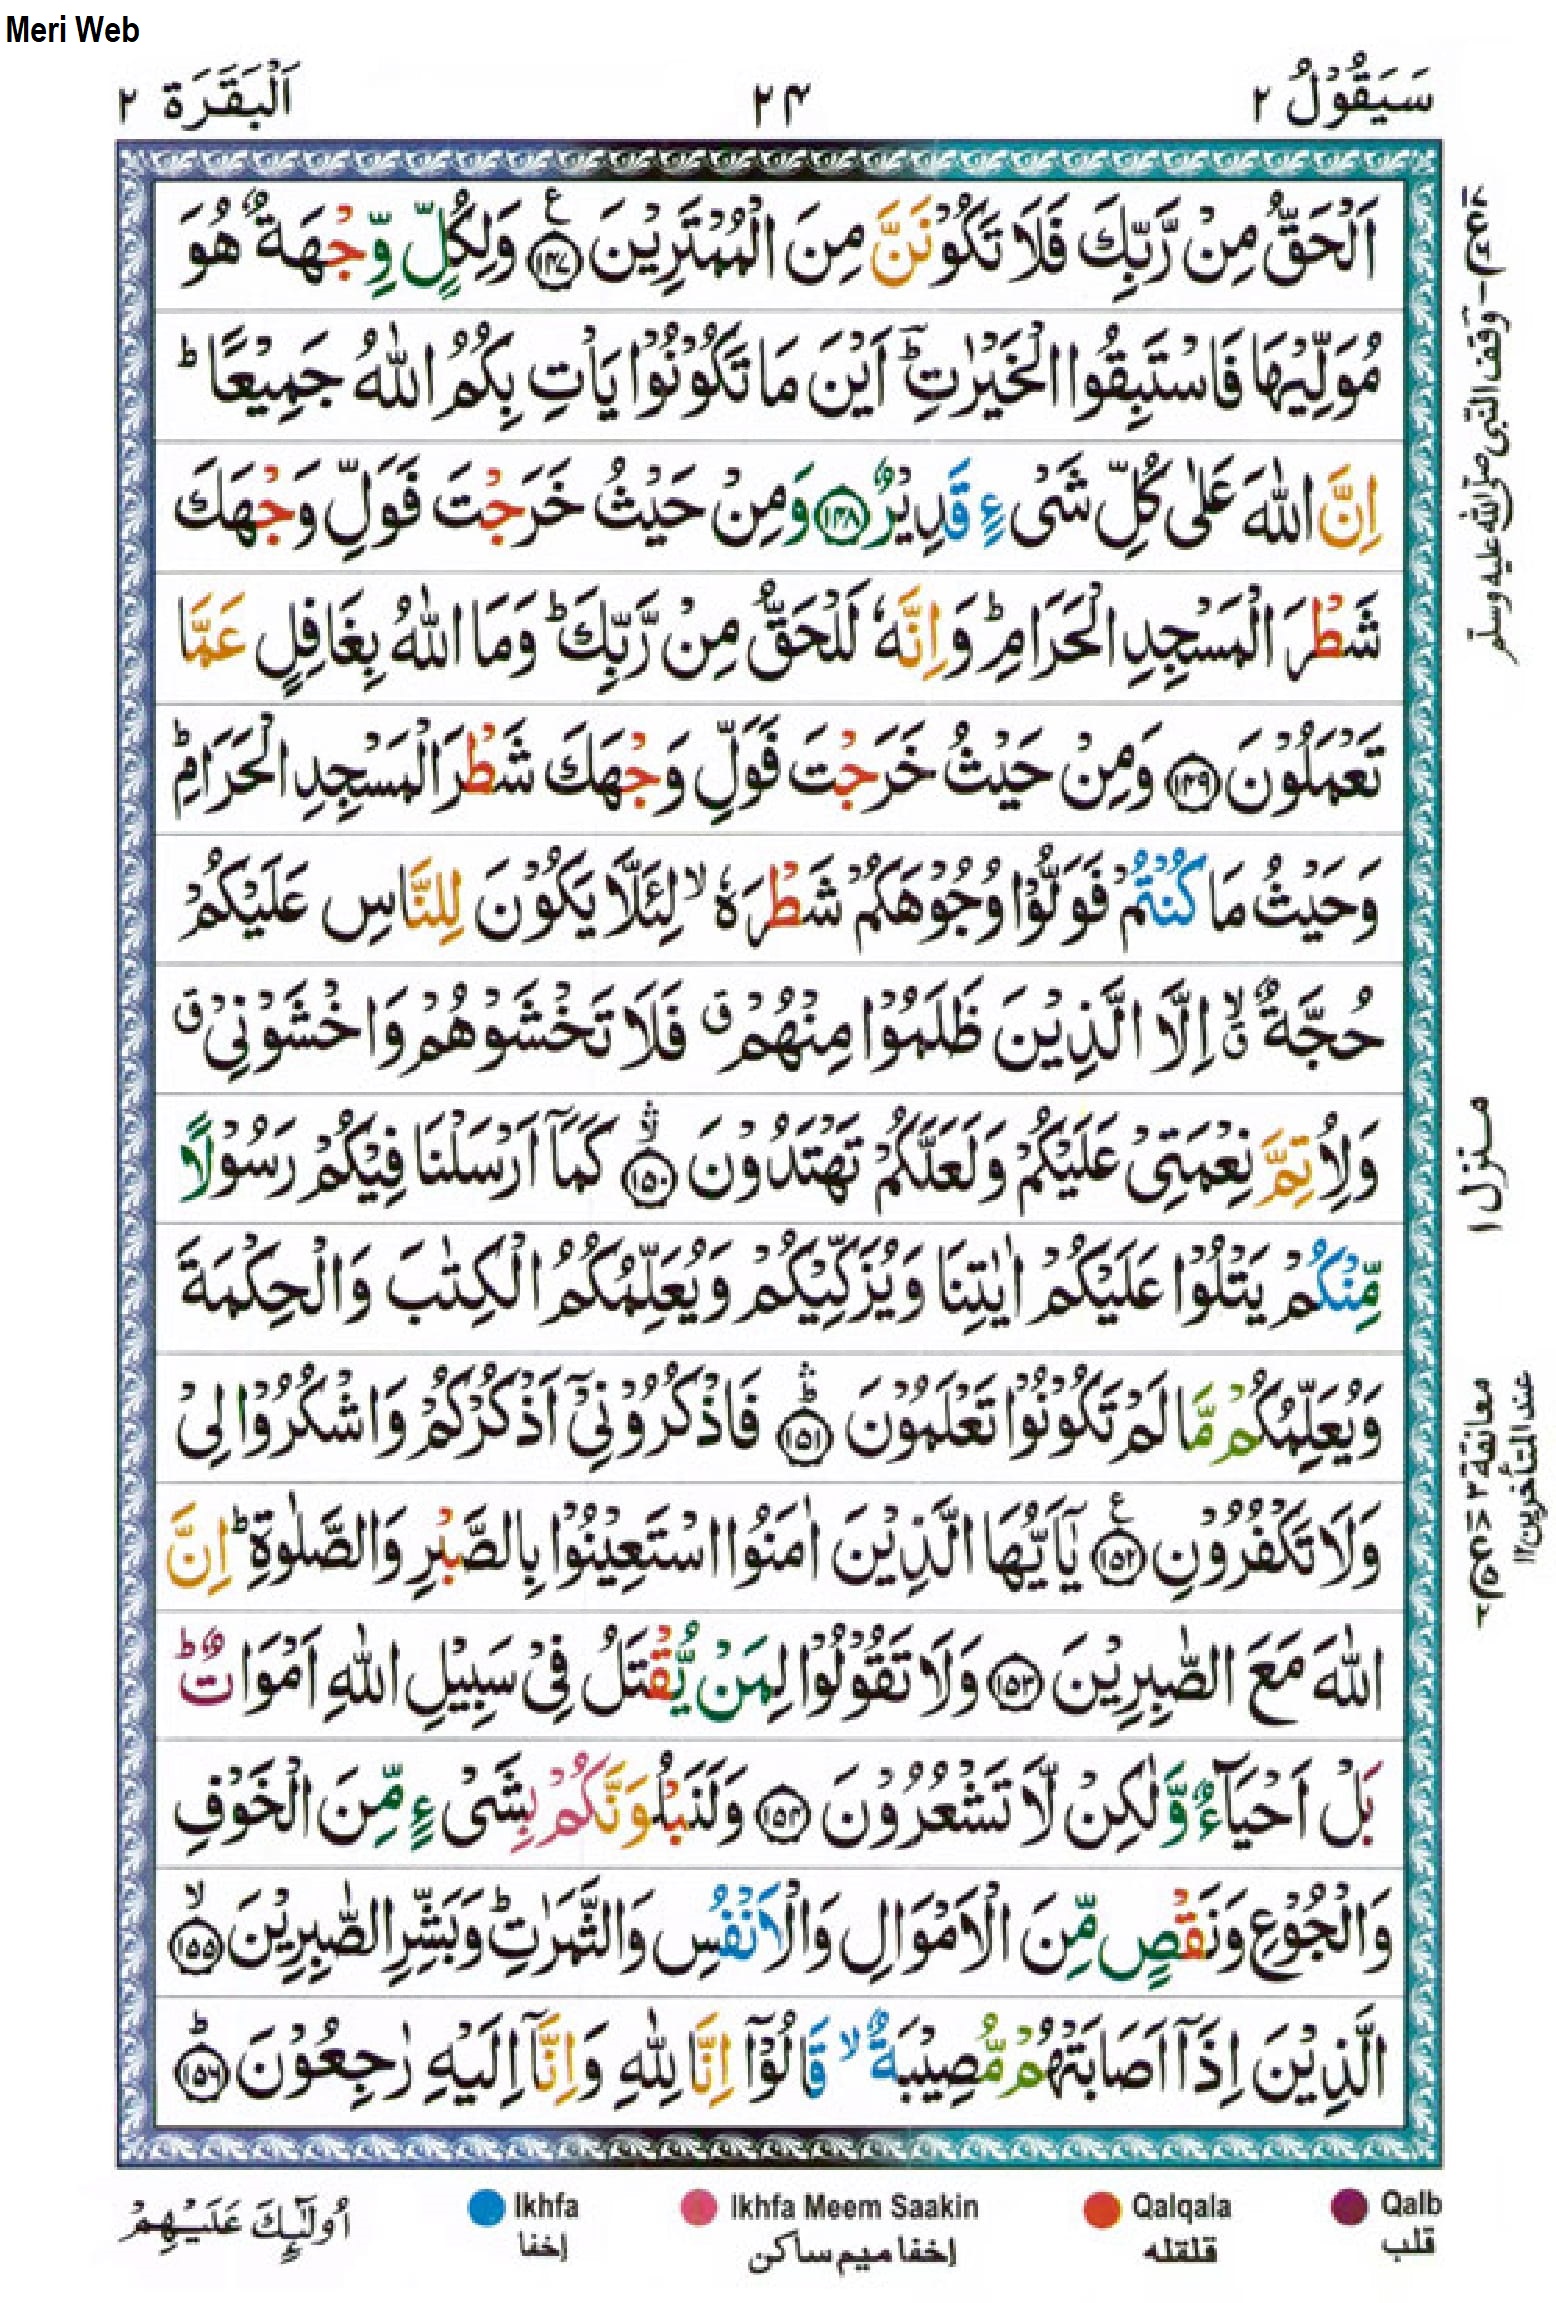 Meri Web
سَيَقُوْلُ ٢
٢۴
اَلْبَقَرَة ٢
اَلْحَقُّ مِنْ رَّبِّكَ فَلَا تَكُوْنَنَّ مِنَ الْمُمْتَرِيْنَ ﴿۱۴۷﴾ؑ وَلِكُلٍّ وِّجْهَةٌ هُوَ
مُوَلِّيْهَا فَاسْتَبِقُوا الْخَيْرٰتِ ؕ اَيْنَ مَا تَكُوْنُوْا يَاْتِ بِكُمُ اللّٰهُ جَمِيْعًا ؕ
اِنَّ اللّٰهَ عَلٰى كُلِّ شَیْءٍ قَدِيْرٌ ﴿۱۴۸﴾ وَمِنْ حَيْثُ خَرَجْتَ فَوَلِّ وَجْهَكَ
شَطْرَ الْمَسْجِدِ الْحَرَامِ ؕ وَاِنَّهٗ لَلْحَقُّ مِنْ رَّبِّكَ ؕ وَمَا اللّٰهُ بِغَافِلٍ عَمَّا
تَعْمَلُوْنَ ﴿۱۴۹﴾ وَمِنْ حَيْثُ خَرَجْتَ فَوَلِّ وَجْهَكَ شَطْرَ الْمَسْجِدِ الْحَرَامِ ؕ
وَحَيْثُ مَا كُنْتُمْ فَوَلُّوْا وُجُوْهَكُمْ شَطْرَهٗ ۙ لِئَلَّا يَكُوْنَ لِلنَّاسِ عَلَيْكُمْ
حُجَّةٌ ۙۗ اِلَّا الَّذِيْنَ ظَلَمُوْا مِنْهُمْ ۗ فَلَا تَخْشَوْهُمْ وَاخْشَوْنِیْ ۗ
وَلِاُتِمَّ نِعْمَتِیْ عَلَيْكُمْ وَلَعَلَّكُمْ تَهْتَدُوْنَ ﴿۱۵۰﴾ۛۙ كَمَاۤ اَرْسَلْنَا فِيْكُمْ رَسُوْلًا
مِّنْكُمْ يَتْلُوْا عَلَيْكُمْ اٰيٰتِنَا وَيُزَكِّيْكُمْ وَيُعَلِّمُكُمُ الْكِتٰبَ وَالْحِكْمَةَ
وَيُعَلِّمُكُمْ مَّا لَمْ تَكُوْنُوْا تَعْلَمُوْنَ ﴿۱۵۱﴾ۛؕ فَاذْكُرُوْنِیْۤ اَذْكُرْكُمْ وَاشْكُرُوْا لِیْ
وَلَا تَكْفُرُوْنِ ﴿۱۵۲﴾ؑ يٰۤاَيُّهَا الَّذِيْنَ اٰمَنُوا اسْتَعِيْنُوْا بِالصَّبْرِ وَالصَّلٰوةِ ؕ اِنَّ
اللّٰهَ مَعَ الصّٰبِرِيْنَ ﴿۱۵۳﴾ وَلَا تَقُوْلُوْا لِمَنْ يُّقْتَلُ فِیْ سَبِيْلِ اللّٰهِ اَمْوَاتٌ ؕ
بَلْ اَحْيَآءٌ وَّلٰكِنْ لَّا تَشْعُرُوْنَ ﴿۱۵۴﴾ وَلَنَبْلُوَنَّكُمْ بِشَیْءٍ مِّنَ الْخَوْفِ
وَالْجُوْعِ وَنَقْصٍ مِّنَ الْاَمْوَالِ وَالْاَنْفُسِ وَالثَّمَرٰتِ ؕ وَبَشِّرِ الصّٰبِرِيْنَ ﴿۱۵۵﴾ۙ
الَّذِيْنَ اِذَاۤ اَصَابَتْهُمْ مُّصِيْبَةٌ ۙ قَالُوْۤا اِنَّا لِلّٰهِ وَاِنَّاۤ اِلَيْهِ رٰجِعُوْنَ ﴿۱۵۶﴾ؕ
وقف النّبی صلّی اللّٰه علیه وسلّم
منزل ۱
معانقة ۳
عند المتأخرين ۱۲
Qalb
قلب
Qalqala
قلقله
Ikhfa Meem Saakin
إخفا میم ساکن
Ikhfa
إخفا
اُولٰٓئِكَ عَلَيْهِمْ